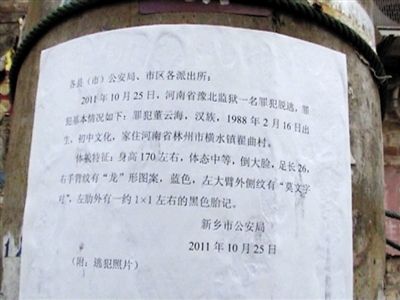 各县（市）公安局、市区各派出所：
2011年10月25日，河南省豫北监狱一名罪犯脱逃，罪
犯基本情况如下：罪犯董云海，汉族，1988年2月16日出
生，初中文化，家住河南省林州市横水镇翟曲村。
体貌特征：身高170左右，体态中等，倒大脸，足长26，
右手臂纹有“龙”形图案，蓝色，左大臂外侧纹有“莫文字
对”，左肋外有一约1×1左右的黑色胎记。
新乡市公安局
2011年10月25日
（附：逃犯照片）